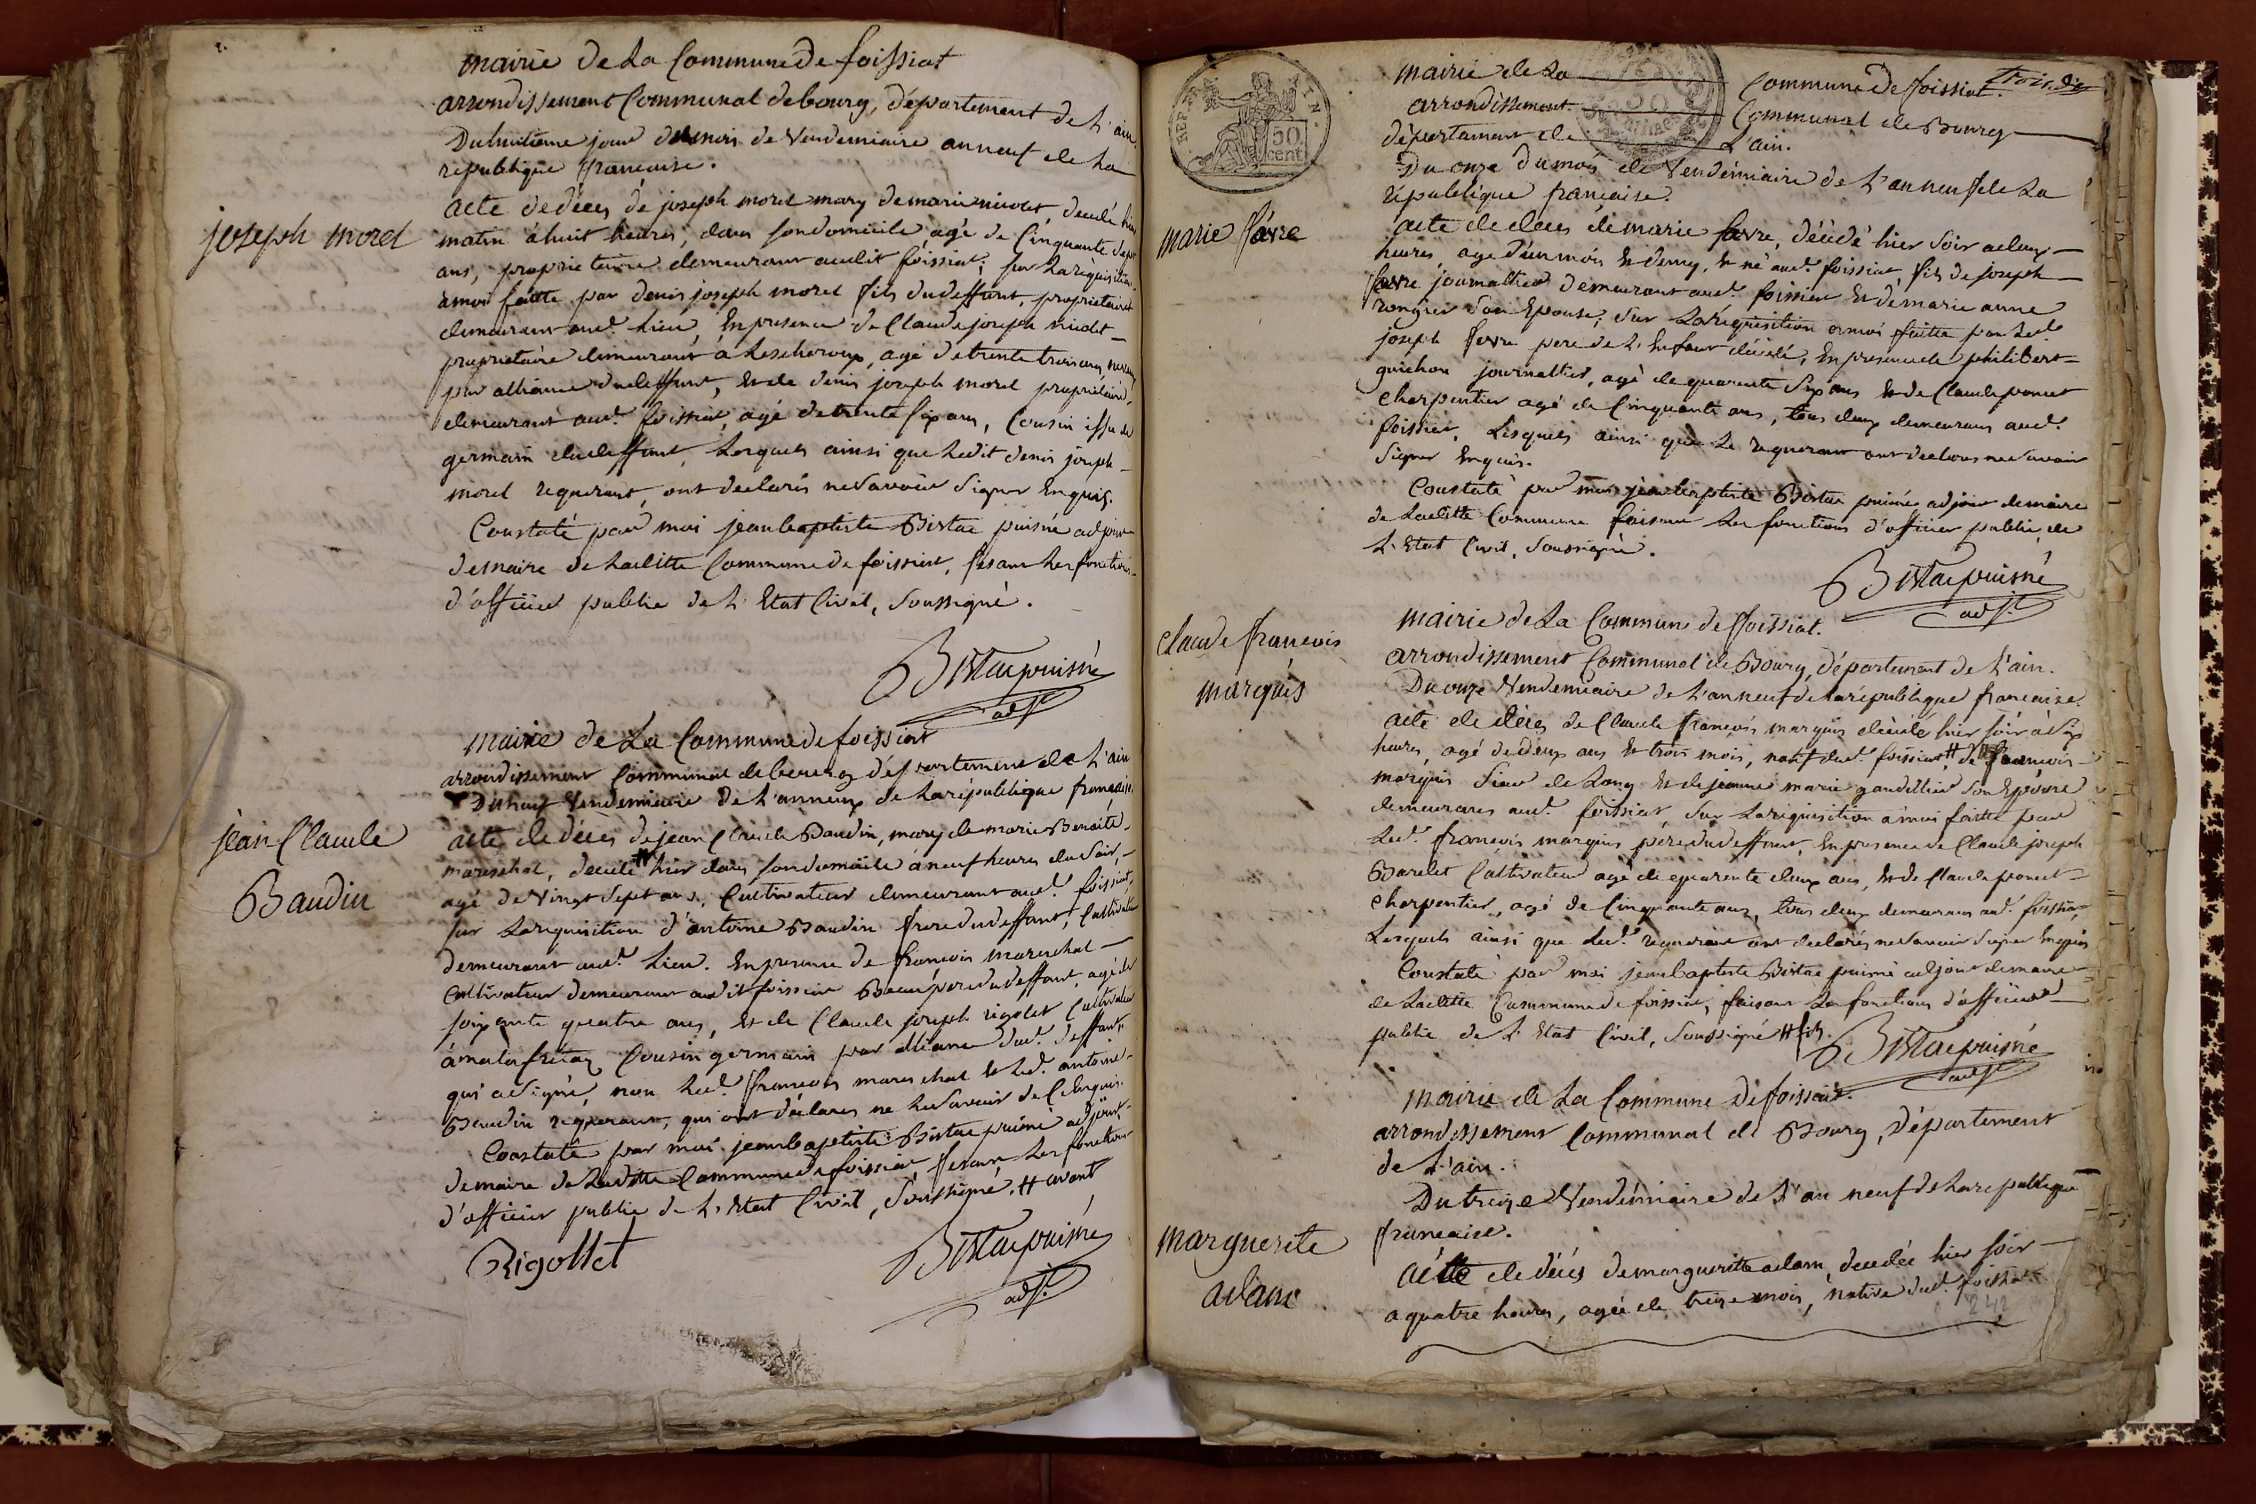 mairie de La Commune de foissiat
arrondissement Communal de bourg, département de L'ain.
Du huitieme jour du mois de Vendemiaire an neuf de La
republique francaise.
joseph morel
acte de décès de joseph morel mary de marie nicolet, decedé hier
matin à huit heures, dans son domicile agé de Cinquante sept
ans, proprietaire demeurant audit foissiat; sur La réquisition
à moi faitte par denis joseph morel fils du deffunt, proprietaire
demeurant aud.t Lieu, En presence de Claude joseph nicolet
proprietaire demeurant à Lescheroux, agé de trente trois ans, neveu
par alliance du deffunt, Et de denis joseph morel proprietaire,
demeurant aud.t foissiat, agé de trente six ans, Cousin issu de
germain du deffunt, Lesquels ainsi que Ledit denis joseph
morel requerant, ont declarés ne Savoir Signer Enquis.
Constaté par moi jean baptiste Bistac puisné adjoint
de maire de Laditte Commune de foissiat, fesant Les fonctions
d'officier public de L'Etat Civil, Soussigné.
Bistac puisné
adj.t
mairie de La Commune de foissiat
arrondissement Communal de bourg département de L'ain
Du huit Vendemiaire de L'an neuf de La république française.
jean Claude
Baudin
acte de décès de jean Claude Baudin, mary de marie Benoite
mareschal, decedé # hier dans son domicile à neuf heures du Soir,
agé de Vingt Sept ans, Cultivateur demeurant aud.t foissiat,
sur La requisition d'antoine Baudin frere du deffunt, Cultivateur
demeurant aud.t Lieu. En presence de francois mareschal
Cultivateur demeurant audit foissiat Beau pere du deffunt, agé de
soixante quatre ans, Et de Claude joseph rigolet Cultivateur
à malafretaz Cousin germain par alliance dud.t deffunt
qui a Signé, non Led.t francois mareschal & Led.t antoine
Baudin requerant, qui ont déclarés ne Le Savoir de Ce Enquis.
Constaté par moi jean baptiste Bistac puisné adjoint
de maire de Laditte Commune de foissiat fesant Les fonctions
d'officier public de L'Etat Civil, Soussigné. # avant
Rigollet
Bistac puisné
adj.t
REP. FRA. TIN.
50
cent
mairie de La Commune de foissiat. trois. dix
arrondissement Communal de Bourg
département de L'ain.
Du onze du mois de Vendémiaire de L'an neuf de La
république française.
marie favre
acte de deces de marie favre, décédé hier Soir a deux
heures, age d'un mois & demy, & né aud.t foissiat, fils de joseph
favre journallier demeurant aud.t foissiat Et de marie anne
rongier Son Epouse, Sur La requisition a moi faitte par Led.t
joseph favre pere de L'Enfant décédé, En presence de philibert
guichon journallier, agé de quarente Six ans & de Claude poncet
charpentier agé de Cinquante ans, tous deux demeurans aud.t
foissiat, Lesquels ainsi que Le requerant ont declarés ne Savoir
Signer Enquis.
Constaté par moi jean baptiste Bistac puisné adjoint de maire
de Laditte Commune faisant Les fonctions d'officier public de
L'Etat Civil, Soussigné.
Bistac puisné
adj.t
mairie de La Commune de foissiat.
claude francois
marquis
arrondissement Communal de Bourg, département de L'ain.
Du onze Vendemiaire de L'an neuf de La république francaise.
acte de décès de Claude françois marquis décédé hier soir à Six
heures, agé de deux ans & trois mois, natif dud.t foissiat # de francois
marquis Et de jeanne marie gaudillier Son Epouse
demeurans aud.t foissiat, Sur La requisition à moi faitte par
Led.t françois marquis père du deffunt, En presence de Claude joseph
Barelet Cultivateur agé de quarente deux ans, Et de Claude poncet
charpentier, agé de Cinquante ans, tous deux demeurans aud.t foissiat,
Lesquels ainsi que Led.t requerant ont declarés ne Savoir Signer Enquis
Constaté par moi jean baptiste Bistac puisné adjoint de maire
de Laditte Commune de foissiat, faisant Les fonctions d'officier
public de L'Etat Civil, Soussigné # fils.
Bistac puisné
adj.t
mairie de La Commune de foissiat.
arrondissement Communal de Bourg, département
de L'ain.
Du treize Vendémiaire de L'an neuf de La republique
francaise.
marguerite
adam
acte de décès de marguerite adam, decedée hier soir
a quatre heures, agée de treize mois, native dud.t foissiat
242